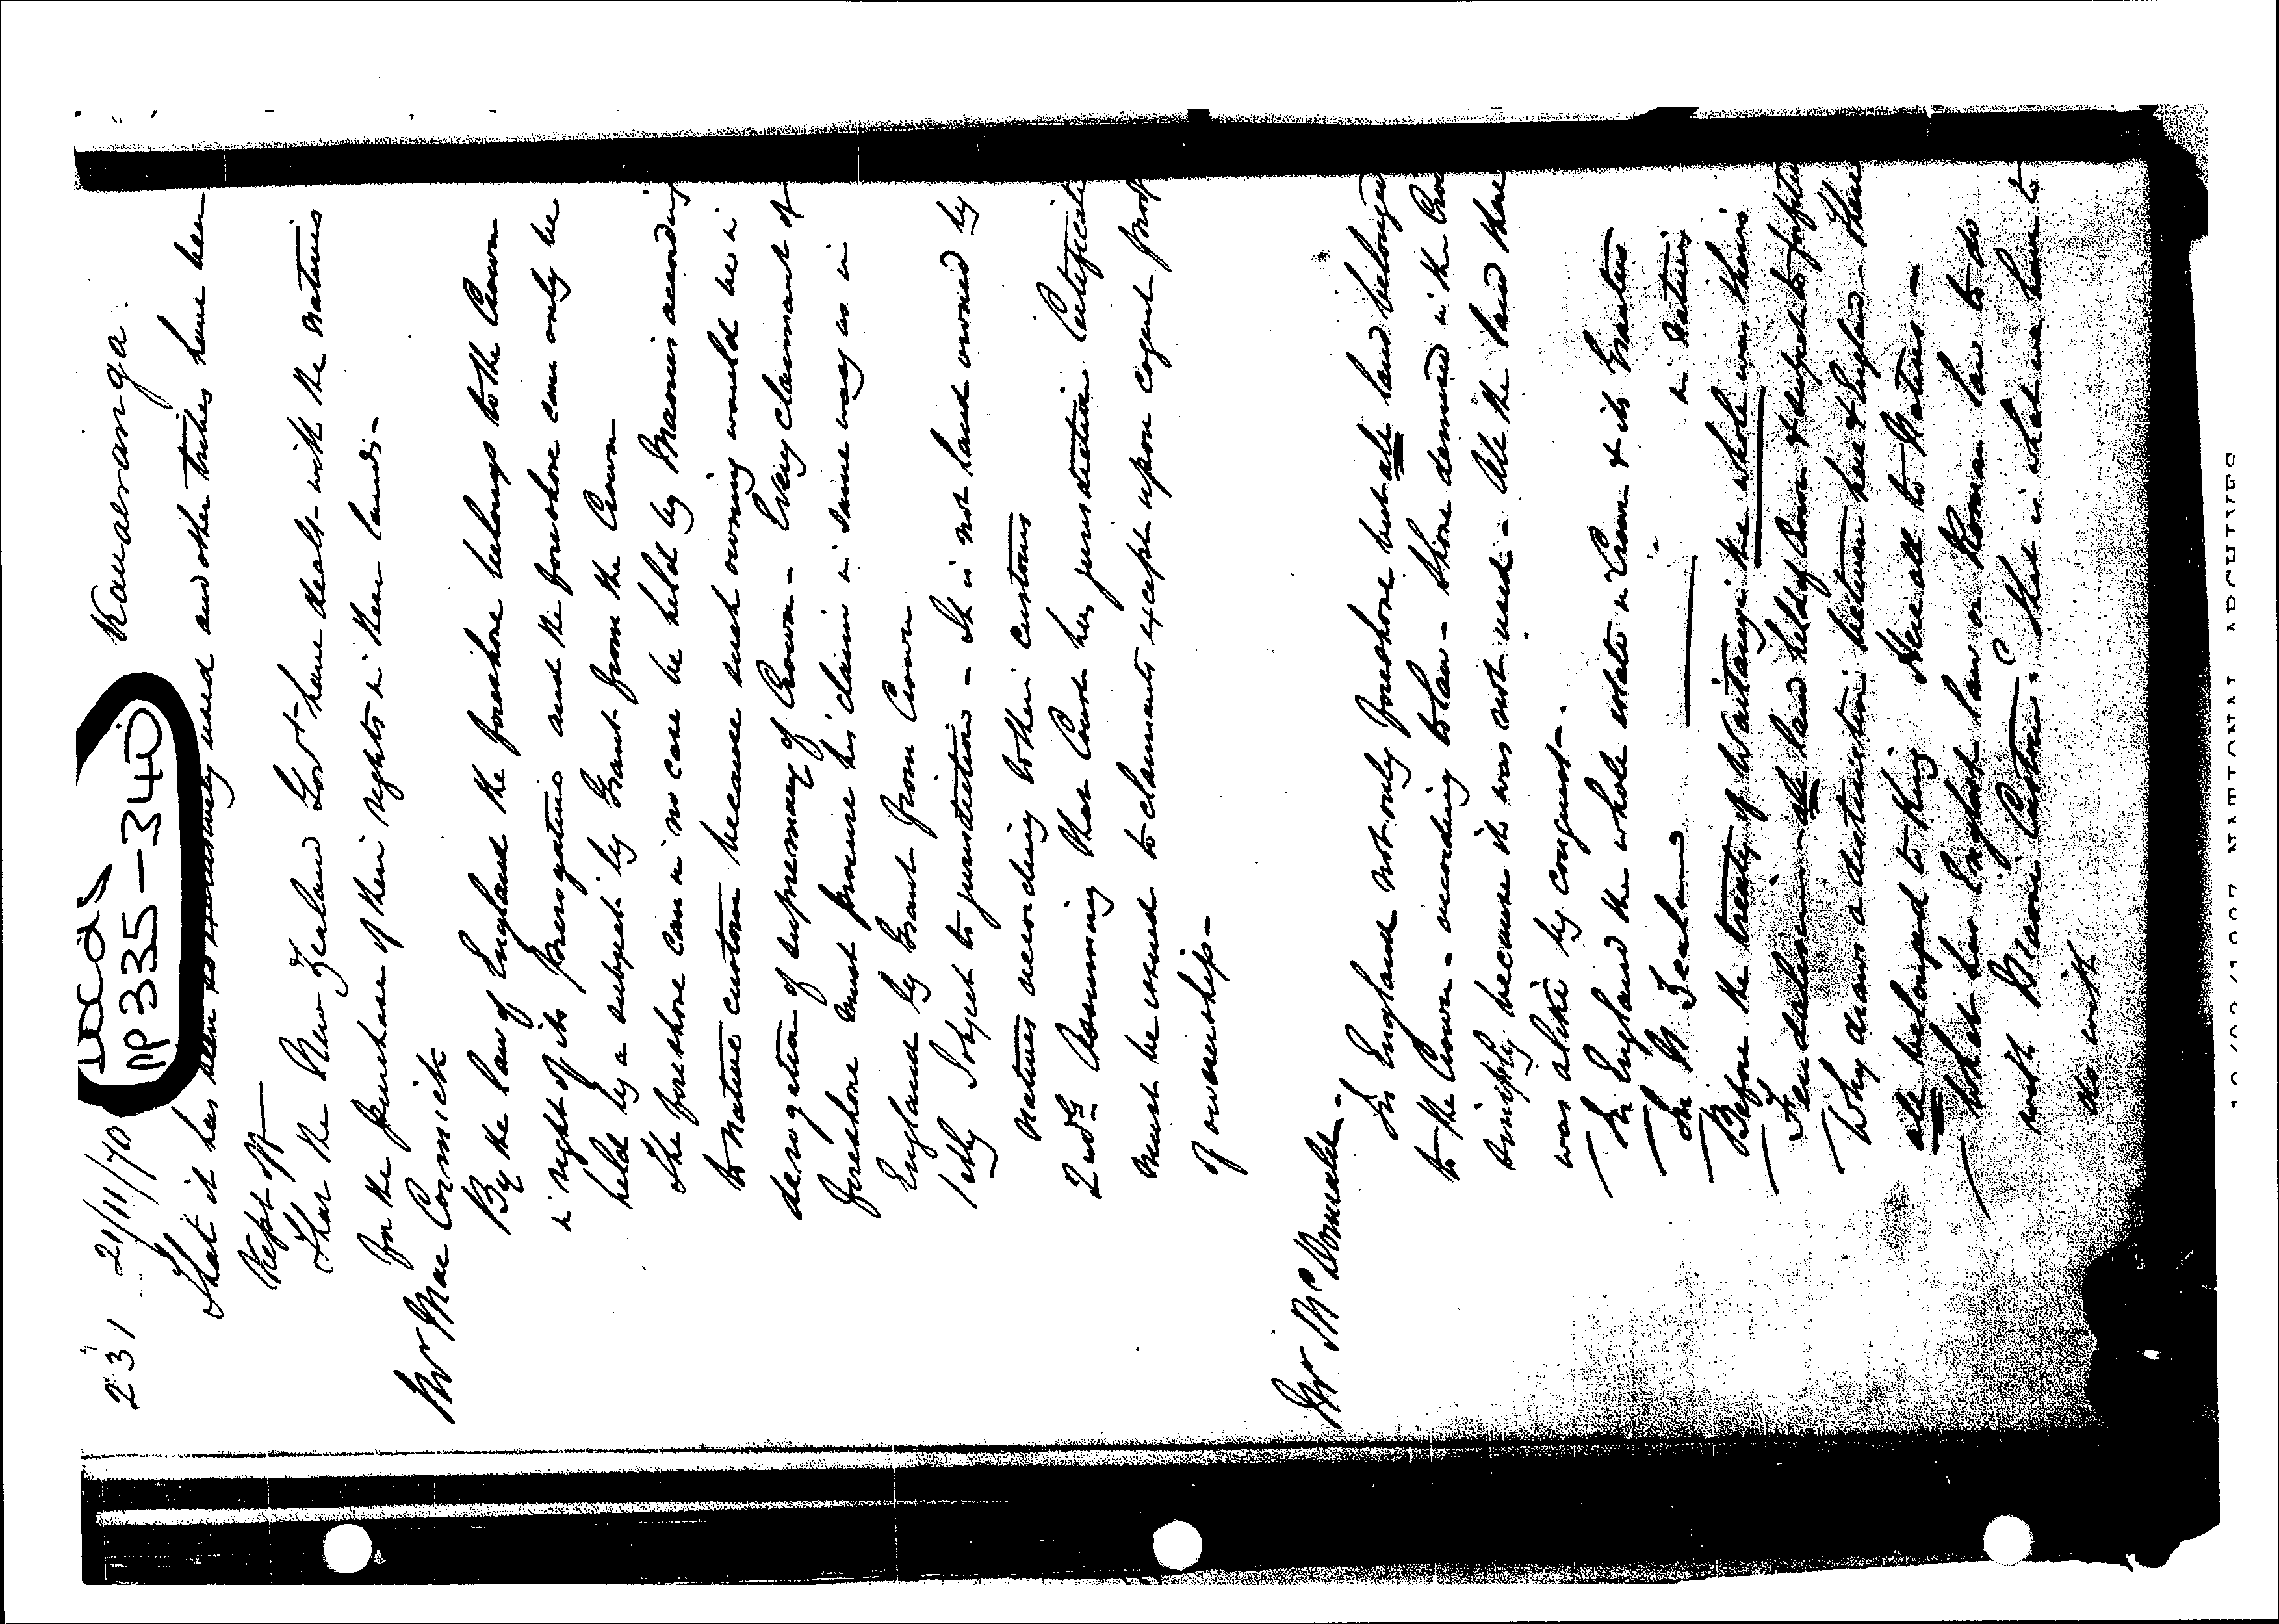 231 21/11/70 Kauaeranga.
DOC a
pp335-340
That it has been so used and other tribes have been
Kept off
That the New Zealand Govt have dealt with the natives
for the purchase of their rights in these lands -
Mr MacCormick
By the law of England the foreshore belongs to the Crown
in right of its prerogative and the foreshore can only be
held by a subject by Grant from the Crown
The foreshore can in no case be held by Maories according
to Native custom because such owning would be in
derogation of supremacy of Crown - Every claimant of
foreshore must procure his claim in same way as in
England by Grant from Crown
1stly Object to jurisdiction - It is not land owned by
Natives according to their customs
2ndly Assuming that Court has jurisdiction Certificate
must be issued to claimants except upon cogent proof
of ownership -
Mr McDonald -
In England not only foreshore but all land belonged
to the Crown - according to law - Shore remained in the Crown
simply because it was not used - All the land there
was alike by conquest -
In England the whole estate in Crown & its Grantees
In N Zealand in Natives
Before the treaty of Waitangi the whole was theirs
Feudalism - all land held of Crown & subject to forfeiture
Why draw a distinction between here & England There
all belonged to King Here all to Natives -
What has English law or Roman law to do
with Maori Custom. That is what we have to
do with
NATIONAL ARCHIVES